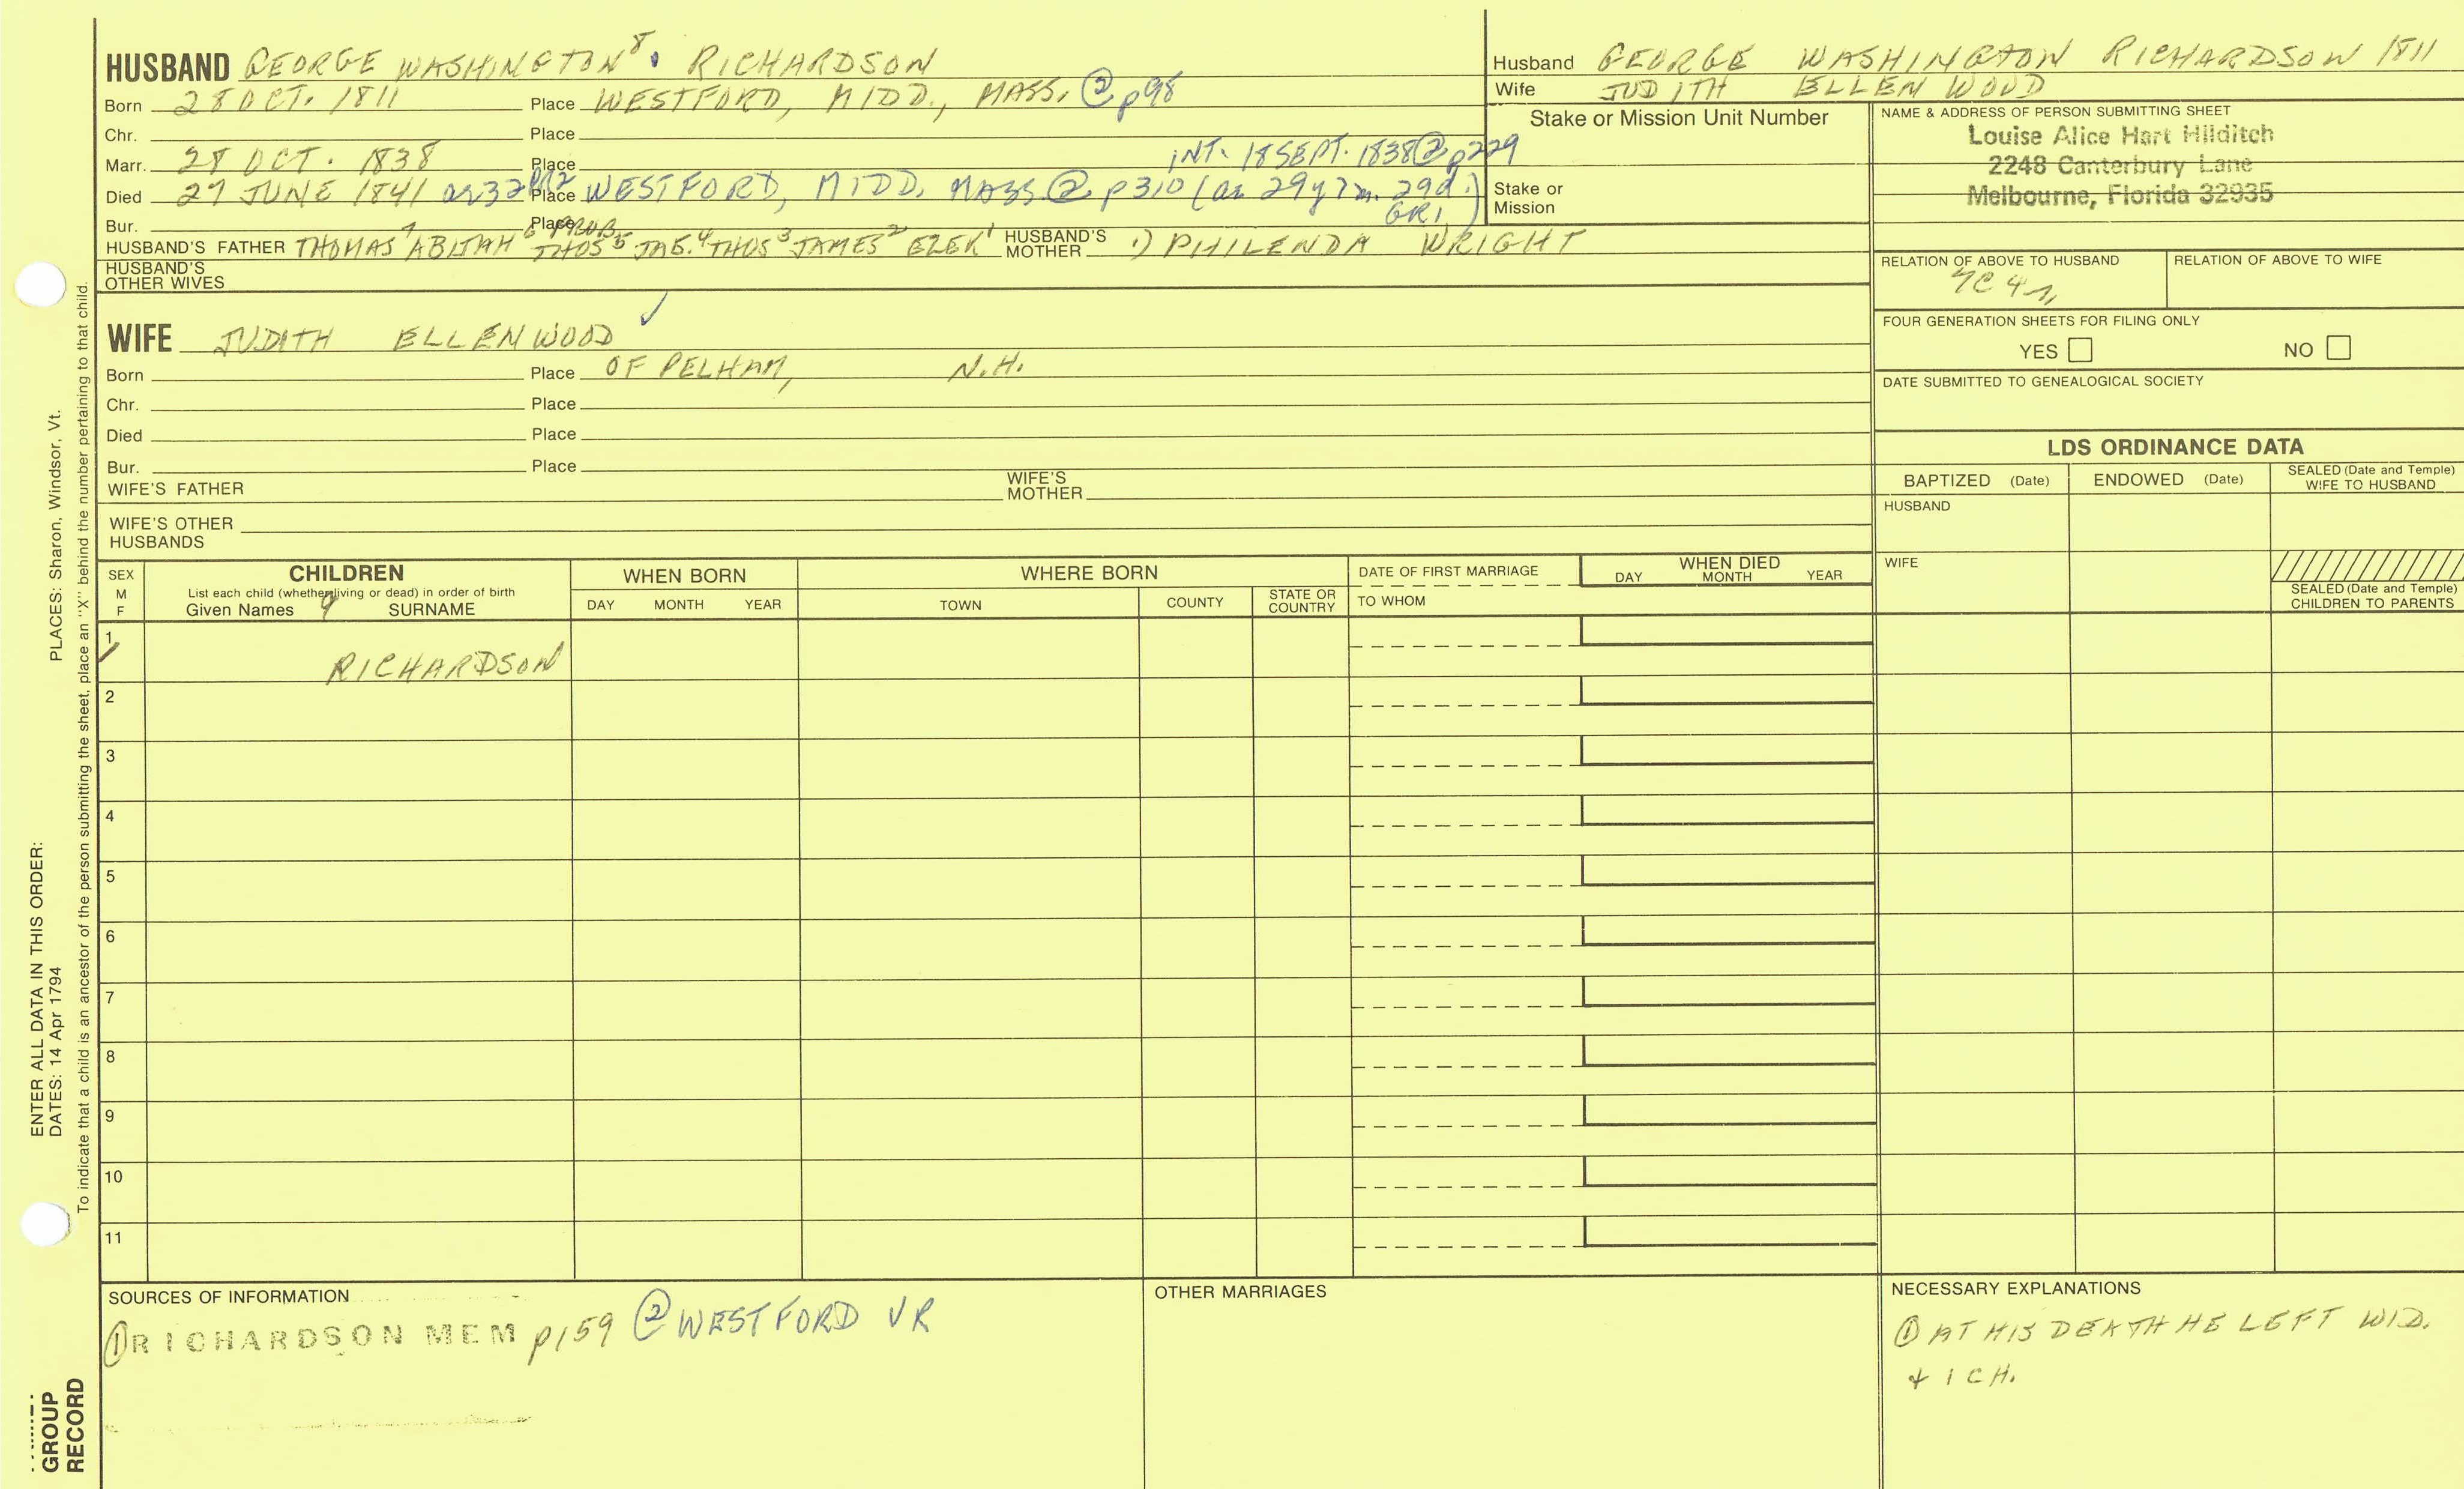 HUSBAND GEORGE WASHINGTON⁸ RICHARDSON
Born 28 OCT. 1811 Place WESTFORD, MIDD., MASS. ② p98
Chr. Place
Marr. 28 OCT. 1838 Place INT. 18 SEPT. 1838 ② p229
Died 27 JUNE 1841 Place WESTFORD, MIDD, MASS ② p310 (as 29y 7m. 29d.) GR1
Bur. Place
HUSBAND'S FATHER THOMAS⁷ ABIJAH⁶ PROB. THOS⁵ JAS.⁴ THOS³ JAMES² EZEK¹ HUSBAND'S MOTHER 1) PHILENDA WRIGHT
HUSBAND'S OTHER WIVES
WIFE JUDITH ELLENWOOD ✓
Born Place OF PELHAM, N.H.
Chr. Place
Died Place
Bur. Place
WIFE'S FATHER WIFE'S MOTHER
WIFE'S OTHER HUSBANDS
Husband GEORGE WASHINGTON RICHARDSON 1811
Wife JUDITH ELLENWOOD
Stake or Mission Unit Number
Stake or Mission
NAME & ADDRESS OF PERSON SUBMITTING SHEET
Louise Alice Hart Hilditch
2248 Canterbury Lane
Melbourne, Florida 32935
RELATION OF ABOVE TO HUSBAND RELATION OF ABOVE TO WIFE
7C 4
FOUR GENERATION SHEETS FOR FILING ONLY
YES NO
DATE SUBMITTED TO GENEALOGICAL SOCIETY
LDS ORDINANCE DATA
BAPTIZED (Date) ENDOWED (Date) SEALED (Date and Temple) WIFE TO HUSBAND
HUSBAND
WIFE
SEALED (Date and Temple) CHILDREN TO PARENTS
SEX M F
CHILDREN
List each child (whether living or dead) in order of birth
Given Names 9 SURNAME
WHEN BORN
DAY MONTH YEAR
WHERE BORN
TOWN COUNTY STATE OR COUNTRY
DATE OF FIRST MARRIAGE
TO WHOM
WHEN DIED
DAY MONTH YEAR
1 RICHARDSON
2
3
4
5
6
7
8
9
10
11
SOURCES OF INFORMATION
① RICHARDSON MEM p159 ② WESTFORD VR
OTHER MARRIAGES
NECESSARY EXPLANATIONS
① AT HIS DEATH HE LEFT WID.
+ 1 CH.
PLACES: Sharon, Windsor, Vt.
ENTER ALL DATA IN THIS ORDER:
DATES: 14 Apr 1794
To indicate that a child is an ancestor of the person submitting the sheet, place an "X" behind the number pertaining to that child.
GROUP
RECORD